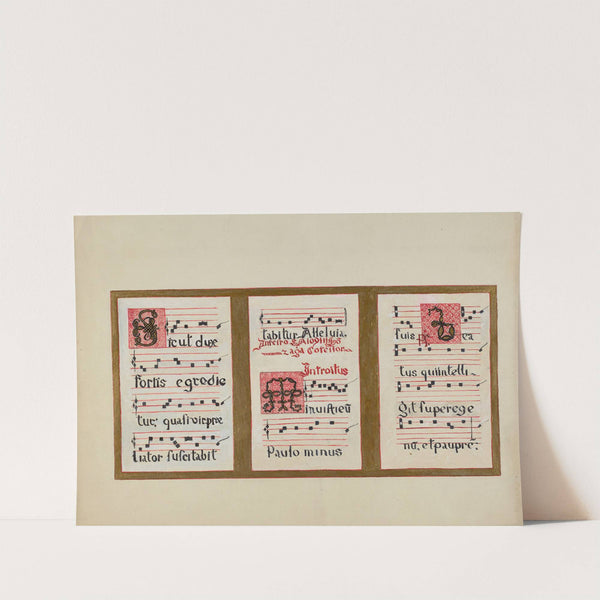 Sicut dux
fortis egredie
tur, quasi vir pre
liator suscitabit
tabitur Alleluia.
Introitus
Minuisti eu
Paulo minus
tuis
Bea
tus qui intelli
Git super ege
nu, et paupre.